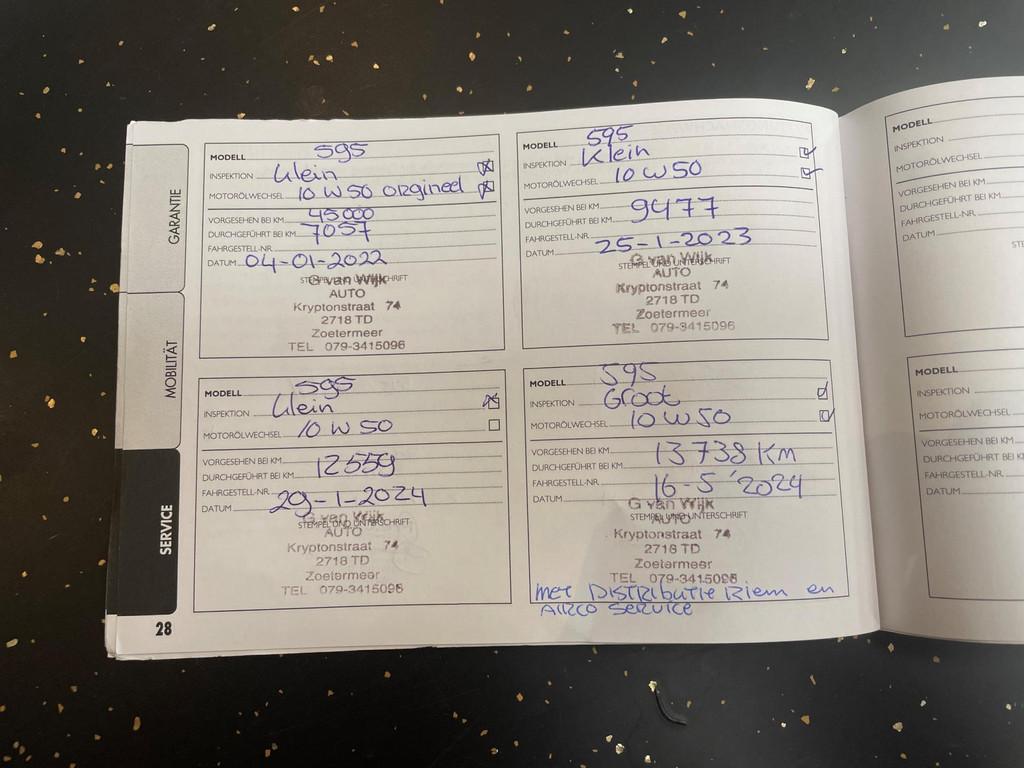 GARANTIE
MOBILITÄT
SERVICE
28
MODELL 595
INSPEKTION Klein
MOTORÖLWECHSEL 10 W 50 orgineel
VORGESEHEN BEI KM 45000
DURCHGEFÜHRT BEI KM 7057
FAHRGESTELL-NR.
DATUM 04-01-2022
STEMPEL UND UNTERSCHRIFT
G van Wijk
AUTO
Kryptonstraat 74
2718 TD
Zoetermeer
TEL 079-3415096
MODELL 595
INSPEKTION Klein
MOTORÖLWECHSEL 10 W 50
VORGESEHEN BEI KM
DURCHGEFÜHRT BEI KM 9477
FAHRGESTELL-NR.
DATUM 25-1-2023
STEMPEL UND UNTERSCHRIFT
G van Wijk
AUTO
Kryptonstraat 74
2718 TD
Zoetermeer
TEL 079-3415096
MODELL 595
INSPEKTION Klein
MOTORÖLWECHSEL 10 W 50
VORGESEHEN BEI KM
DURCHGEFÜHRT BEI KM 12559
FAHRGESTELL-NR.
DATUM 29-1-2024
STEMPEL UND UNTERSCHRIFT
G van Wijk
AUTO
Kryptonstraat 74
2718 TD
Zoetermeer
TEL 079-3415096
MODELL 595
INSPEKTION Groot
MOTORÖLWECHSEL 10 W 50
VORGESEHEN BEI KM
DURCHGEFÜHRT BEI KM 13738 Km
FAHRGESTELL-NR.
DATUM 16-5-'2024
STEMPEL UND UNTERSCHRIFT
G van Wijk
AUTO
Kryptonstraat 74
2718 TD
Zoetermeer
TEL 079-3415096
met DISTRIBUTIE Riem en
AIRCO SERVICE
MODELL
INSPEKTION
MOTORÖLWECHSEL
VORGESEHEN BEI KM
DURCHGEFÜHRT BEI KM
FAHRGESTELL-NR.
DATUM
MODELL
INSPEKTION
MOTORÖLWECHSEL
VORGESEHEN BEI KM
DURCHGEFÜHRT BEI KM
FAHRGESTELL-NR.
DATUM